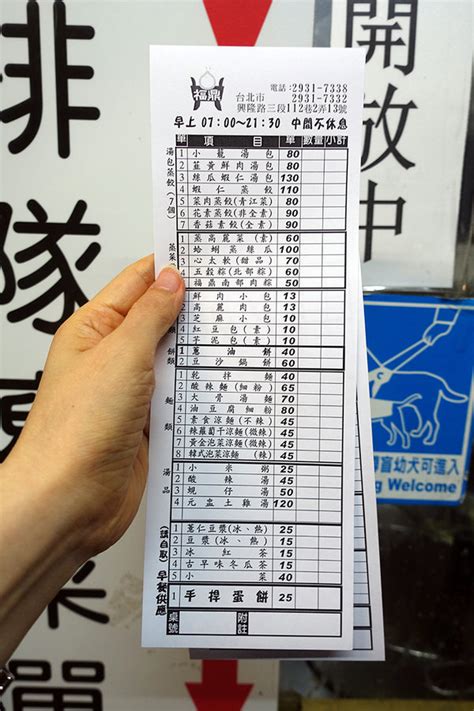 福鼎
電話：2931-7338
2931-7332
台北市
興隆路三段112巷2弄13號
早上 07:00~21:30 中間不休息
單 項目 單 數量 小計
湯包蒸餃(7個)
1 小籠湯包 80
2 韮黃鮮肉湯包 80
3 絲瓜蝦仁湯包 130
4 蝦仁蒸餃 110
5 菜肉蒸餃(青江菜) 80
6 花素蒸餃(非全素) 90
7 香菇素餃(全素) 90
蒸菜
1 蒸高麗菜(素) 60
2 蛤蜊蒸絲瓜 100
3 心太軟(甜品) 70
4 五穀粽(北部粽) 60
5 福鼎南部肉粽 60
1 鮮肉小包 13
2 高麗小包 13
3 芝麻小包 10
4 紅豆包(素) 10
5 芋泥包(素) 10
餅類
1 蔥油餅 40
2 豆沙鍋餅 60
麵類
1 乾拌麵 40
2 酸辣麵(細粉) 65
3 大骨湯麵 50
4 油豆腐細粉 50
5 素食涼麵(不辣) 45
6 辣蘿蔔干涼麵(微辣) 45
7 黃金泡菜涼麵(微辣) 45
8 韓式泡菜涼麵(辣) 45
湯品
1 小米粥 25
2 酸辣湯 45
3 蜆仔湯 50
4 元盅土雞湯
(請自取)早餐供應
1 薏仁豆漿(冰、熱) 25
2 豆漿(冰、熱) 15
3 冰紅茶 15
4 古早味冬瓜茶 15
5 小菜 40
1 手捍蛋餅 25
桌號 附註
排隊
菜單
開放中
導盲幼犬可進入
Welcome